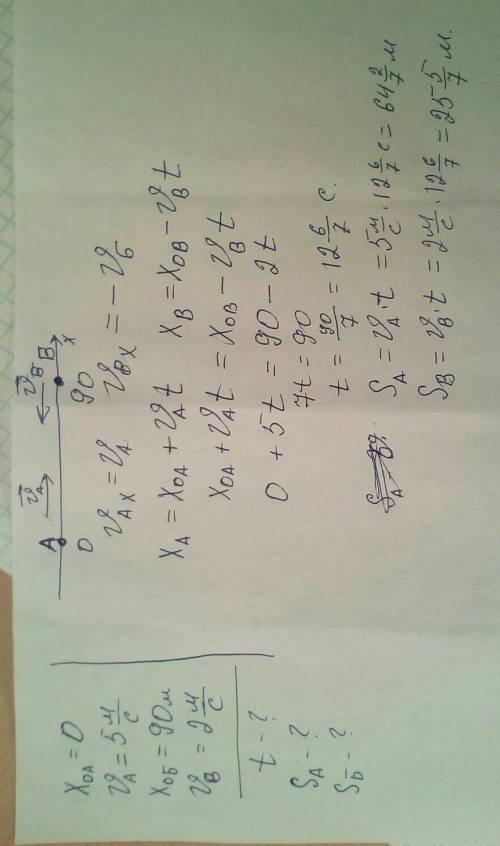 X₀A = 0
𝒱A = 5 м/с
X₀Б = 90 м
𝒱B = 2 м/с
t - ?
SA - ?
SБ - ?
A 𝒱A→ ←𝒱B B x
0 90
𝒱Ax = 𝒱A 𝒱Bx = -𝒱Б
XA = X₀A + 𝒱A t XB = X₀B - 𝒱B t
X₀A + 𝒱A t = X₀B - 𝒱B t
0 + 5t = 90 - 2t
7t = 90
t = 90/7 = 12 6/7 с.
SA = 𝒱A · t = 5 м/с · 12 6/7 с = 64 2/7 м
SB = 𝒱B · t = 2 м/с · 12 6/7 = 25 5/7 м.